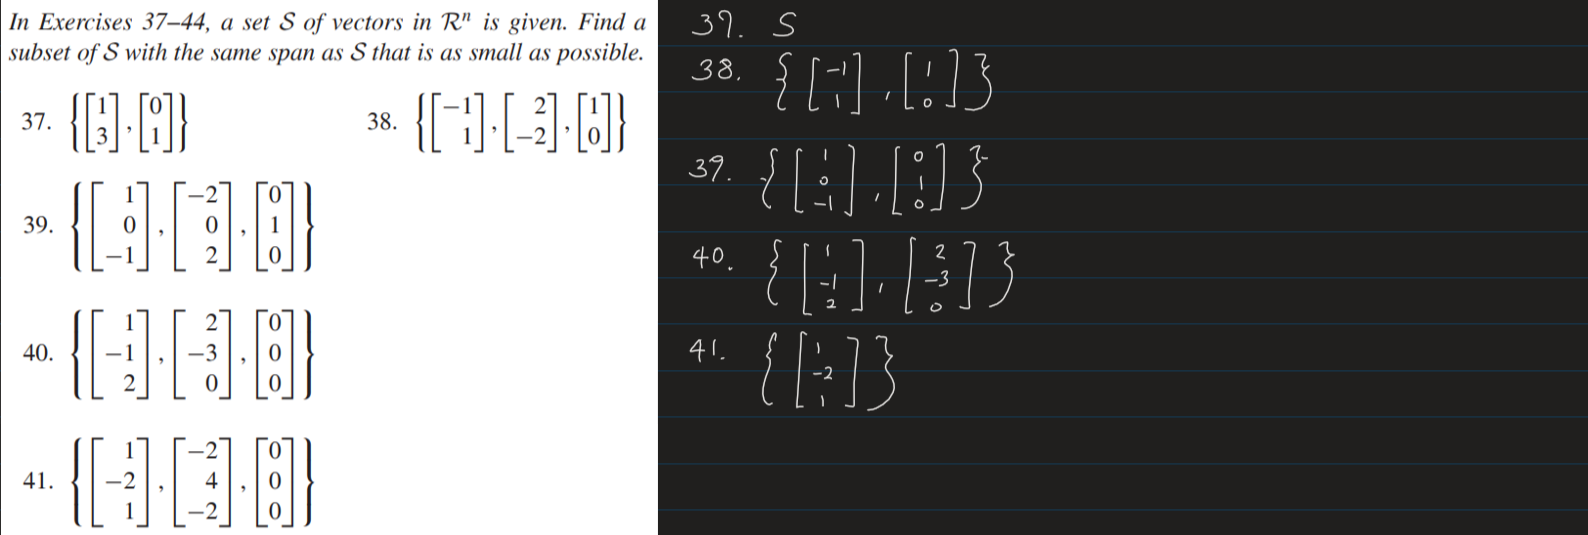 In Exercises 37–44, a set S of vectors in Rⁿ is given. Find a
subset of S with the same span as S that is as small as possible.
37. {[1 3], [0 1]}
38. {[−1 1], [2 −2], [1 0]}
39. {[1 0 −1], [−2 0 2], [0 1 0]}
40. {[1 −1 2], [2 −3 0], [0 0 0]}
41. {[1 −2 1], [−2 4 −2], [0 0 0]}
37. S
38. {[−1 1], [1 0]}
39. {[1 0 −1], [0 1 0]}
40. {[1 −1 2], [2 −3 0]}
41. {[1 −2 1]}